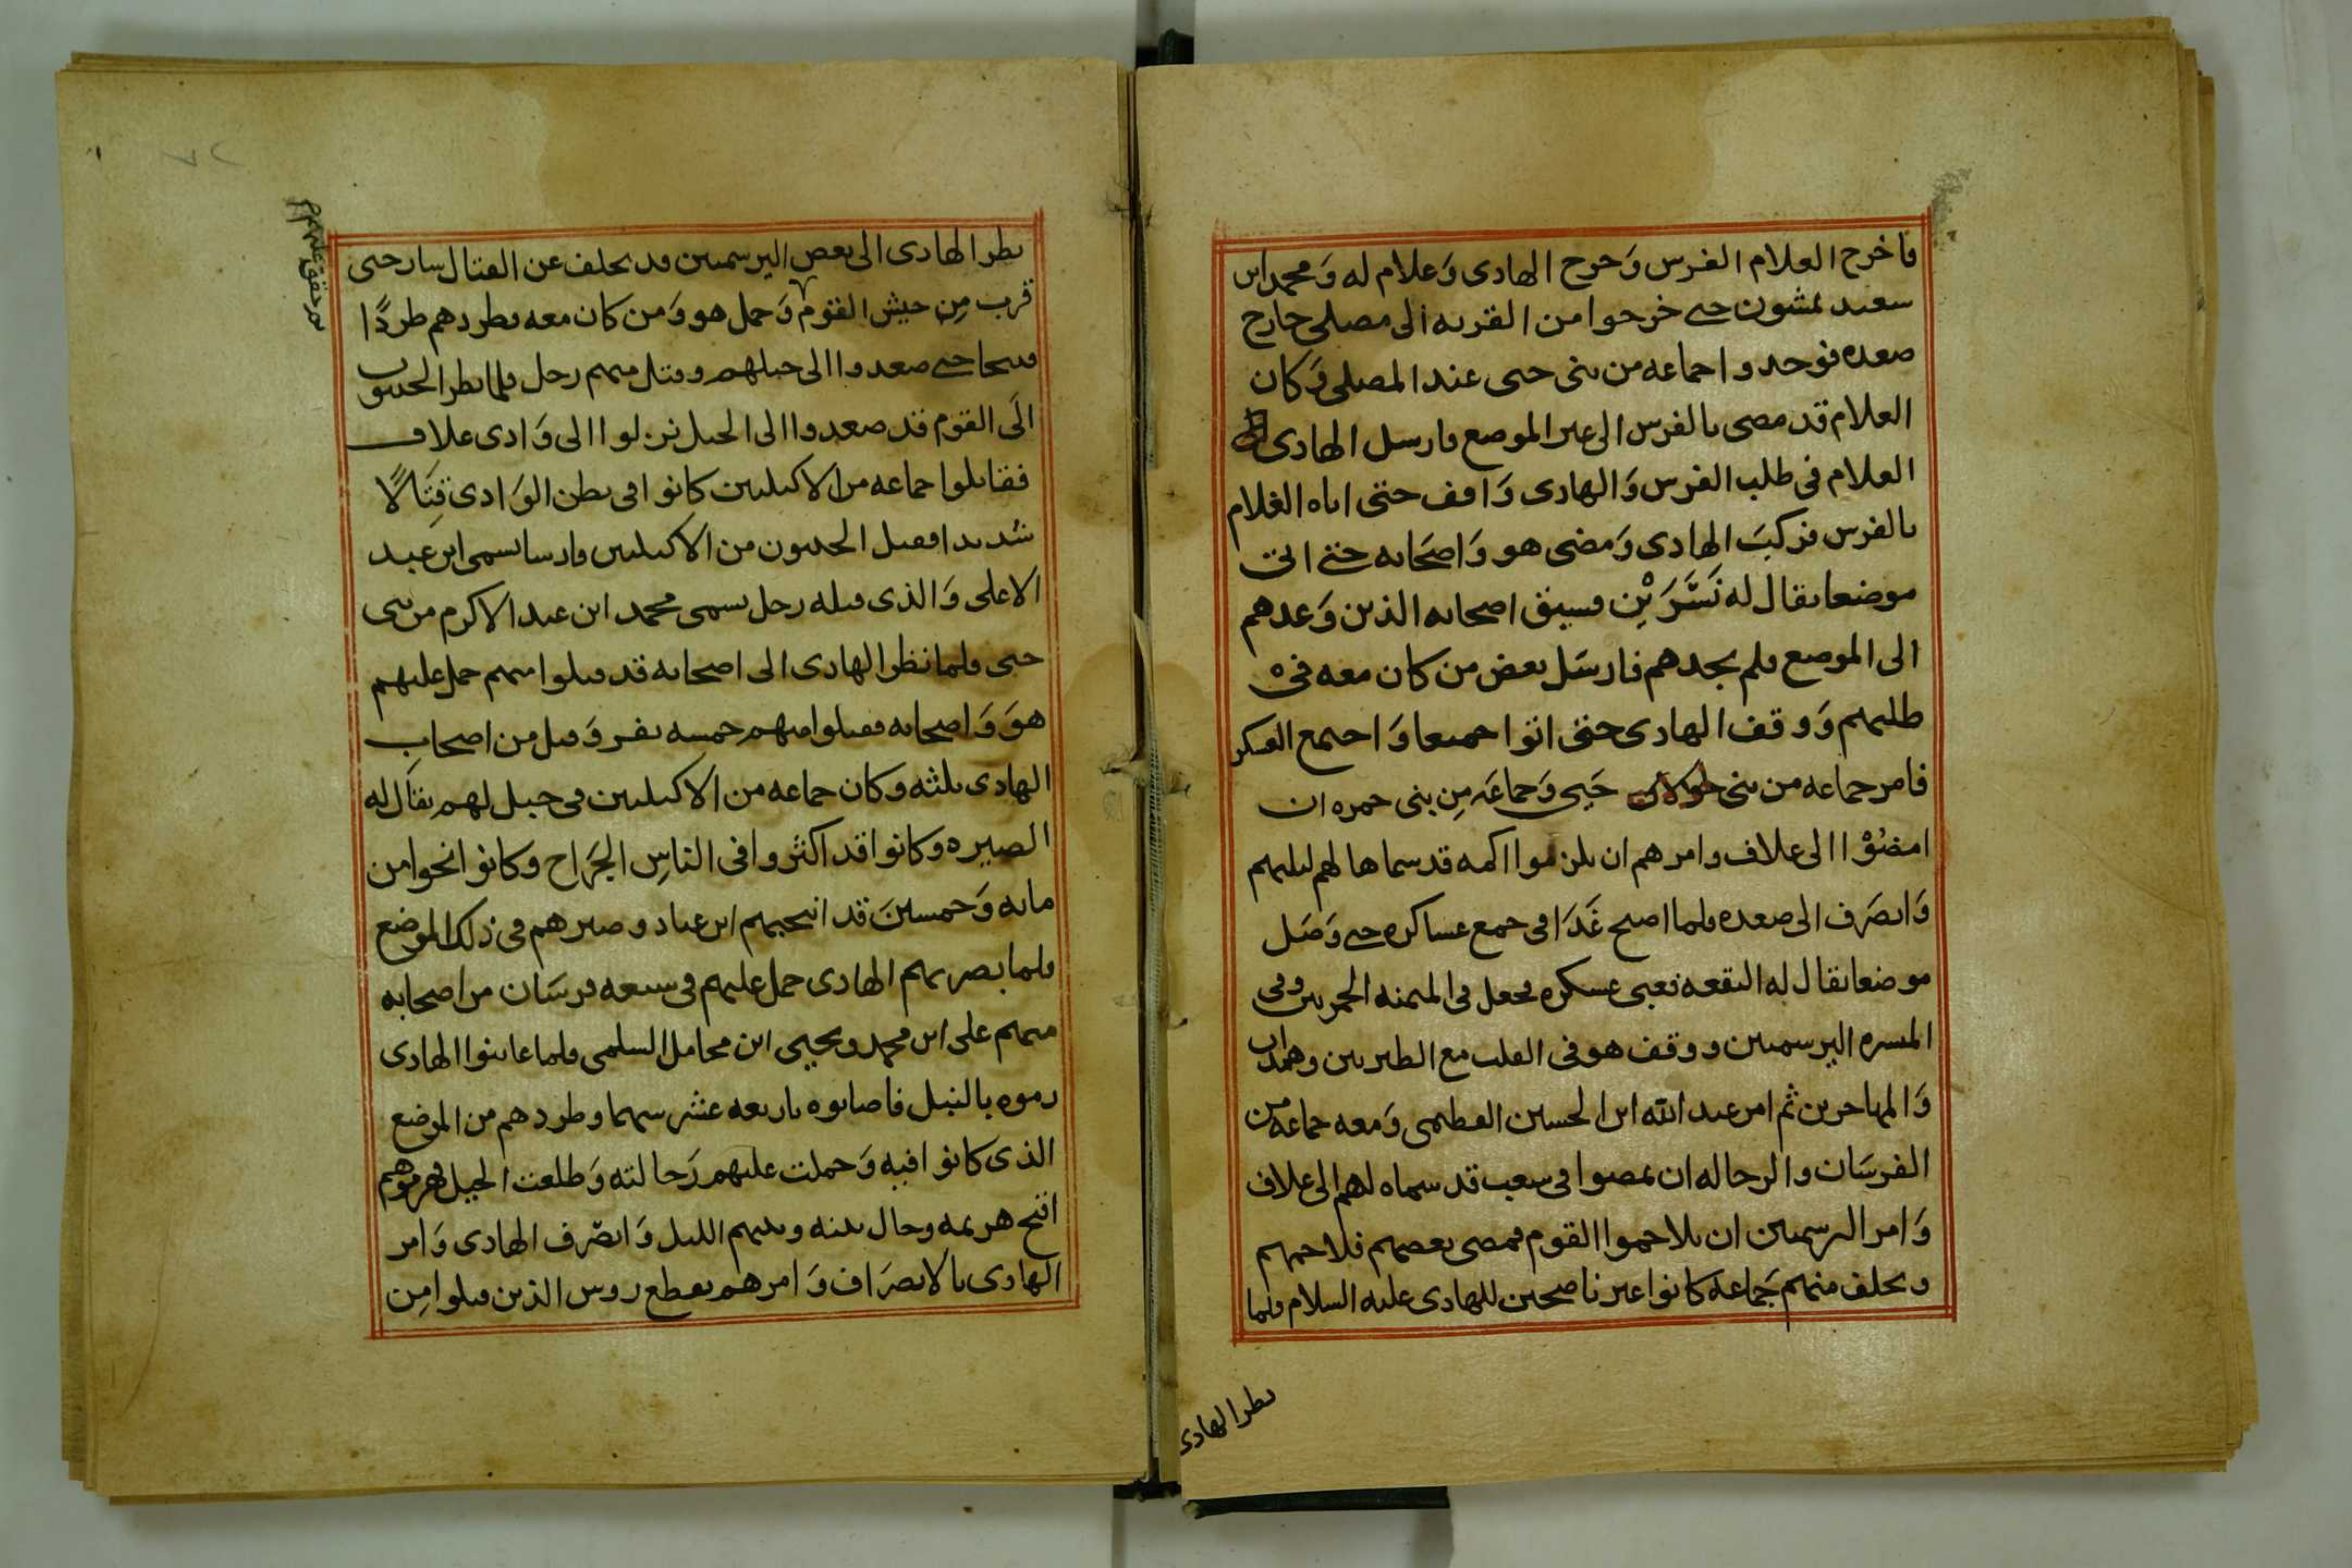 فاخرج الغلام الفرس وَخرج الهادى وَغلام له وَمحمد ابن
سعيد يمشون حتى خرجوا من القريه الى مصلى خارج
صعده فوجدوا جماعه من بنى حيى عند المصلى وَكان
الغلام قد مضى بالفرس الى غير الموضع فارسل الهادى
الغلام فى طلب الفرس وَالهادى وَاقف حتى اتاه الغلام
بالفرس فركبَ الهادى وَمضى هو وَاصحَابه حتى اتى
موضعا يقال له نَسَّرَيْن وسبق اصحابه الذين وَعدهم
الى الموضع فلم يجدهم فارسَل بعض من كان معه فى
طلبهم وَوقف الهادى حتى اتوا جميعا وَاجتمع العسكر
فامر جماعه من بنى حَيى وَجماعَه مِن بنى جمره ان
امضُوْا الى علاف وامرهم ان يلزموا اكمه قد سماها لهم ليليهم
وَانصَرَف الى صعده فلما اصبح غَدَا فى جمع عساكره حتى وَصَل
موضعا يقال له البقعه فعبى عسكره فجعل فى الميمنه الحمريين وفى
الميسره اليرسميين ووقف هو فى القلب مع الطبريين وهمدان
وَالمهاجرين ثم امر عبد الله ابن الحسين الفطيمى وَمعه جماعه من
الفرسَان والرجاله ان يمضوا فى شعب قد سماه لهم الى علاف
وَامر اليرسميين ان يلاحموا القوم فمضى بعضهم فلاحمهم
وتخلف منهم جَماعه كانوا غير ناصحين للهادى عليه السلام فلما
نظر الهادى
نظر الهادى الى بعض اليرسميين قد تخلف عن القتال سار حتى
قرب مِن جيش القوم وَحمل هو وَمن كان معه فطردهم طردًا
حتى صعدوا الى جبلهم وقتل منهم رجل فلما نظر الحييون
الَى القوم قد صعدوا الى الجبل نزلوا الى وَادى علاف
فقاتلوا جماعه من الاكيليين كانوا فى بطن الوَادى قِتَالًا
شديدا فقتل الحييون من الاكيليين فارسا يسمى ابن عبد
الاعلى وَالذى قتله رجل يسمى محمد ابن عبد الاكرم من بنى
حيى فلما نظر الهادى الى اصحابه قد قتلوا منهم حمل عليهم
هوَ وَاصحابه فقتلوا منهم خمسه نفر وَقتل من اصحاب
الهادى ثلثه وكان جماعه من الاكيليين فى جبل لهم يقَال له
الصبره وكانوا قد اكثروا فى الناسِ الجرَاح وكانوا نحوا من
مايه وَخمسينَ قد انتخبهم ابن عباد وصيرهم فى ذلك الموضع
فلما بصر بهم الهادى حمل عليهم فى سبعه فرسَان من اصحابه
منهم على ابن محمد ويحيى ابن محامل السلمى فلما عاينوا الهادى
رموه بالنبل فاصابوه باربعه عشر سهما وطردهم من الموضع
الذى كانوا فيه وَحملت عليهم رَجالته وَطلعت الجبل فهزموهم
اقبح هزيمه وحال بينه وبينهم الليل وَانصَرف الهادى وَامر
الهادى بالانصرَاف وَامرهم بقطع روس الذين قتلوا مِن